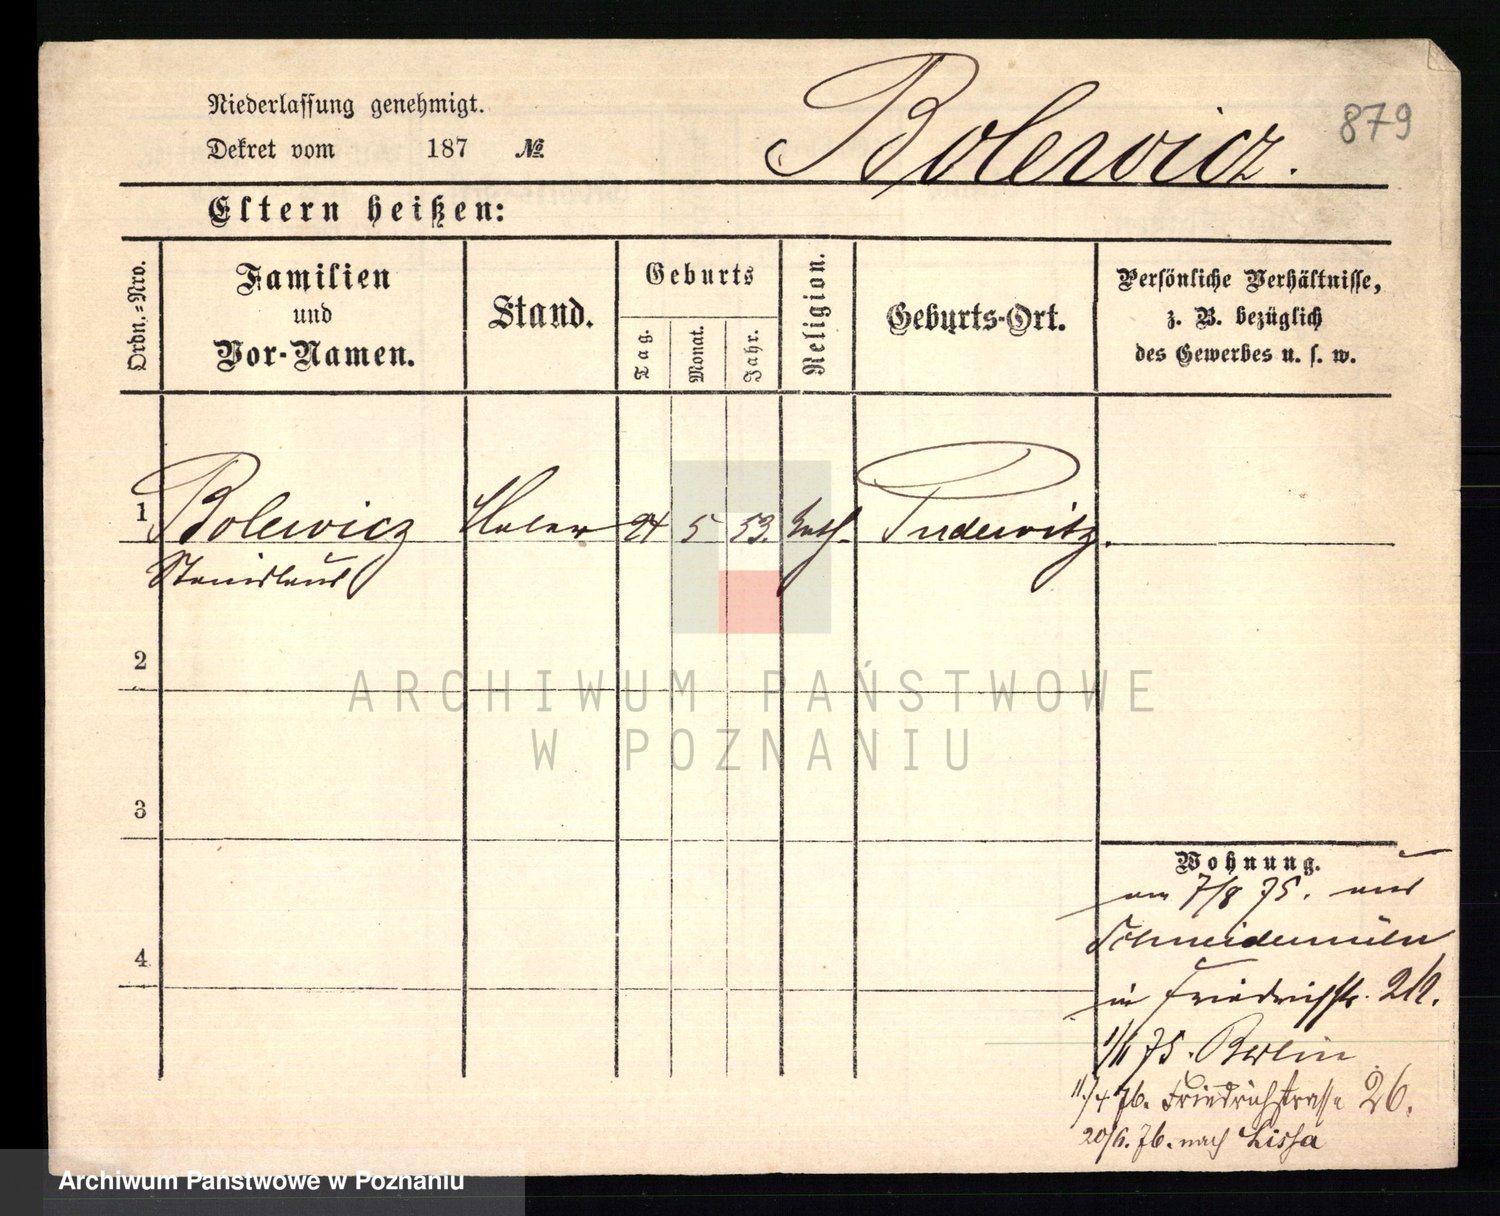 879
Niederlassung genehmigt.
Bolewicz.
Dekret vom 187 №
Eltern heißen:
Ordn.-Nro.
Familien und Vor-Namen.
Stand.
Geburts
Tag.
Monat.
Jahr.
Religion.
Geburts-Ort.
Persönliche Verhältnisse,
z. B. bezüglich
des Gewerbes u. s. w.
1 Bolewicz Maler 24 5 53. kath. Pudewitz.
Stanislaus
2
ARCHIWUM PAŃSTWOWE
W POZNANIU
3
Wohnung.
am 7/8 75. aus
Schneidemühl
4
in Friedrichstr.
75. Berlin
11/4 76. Friedrichstrasse 26.
20/6. 76. nach Lissa
Archiwum Państwowe w Poznaniu